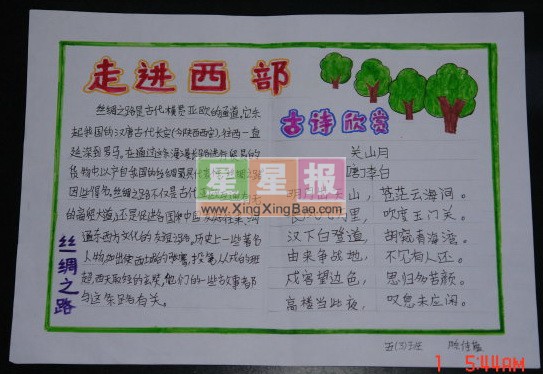 走进西部
丝绸之路是古代横贯亚欧的通道,它东
起我国的汉唐古代长安(今陕西西安),往西一直
延深到罗马。在通过这条漫漫长路进行贸易的
货物中以产自我国的丝绸最具代表 丝绸之路
因此得名。丝绸之路不仅是古代
的商贸大道,还是促进各国
通东西方文化的友谊之路。历史上一些著名
人物,如出使西域的张骞,投笔从戎的班
超,西天取经的玄奘,他们的一些故事都
与这条路有关。
丝绸之路
古诗欣赏
关山月
唐:李白
明月出天山，苍茫云海间。
里，吹度玉门关。
汉下白登道，胡窥青海湾。
由来争战地，不见有人还。
戍客望边色，思归多苦颜。
高楼当此夜，叹息未应闲。
星星报
www.XingXingBao.com
五(3)班
1 5:44AM